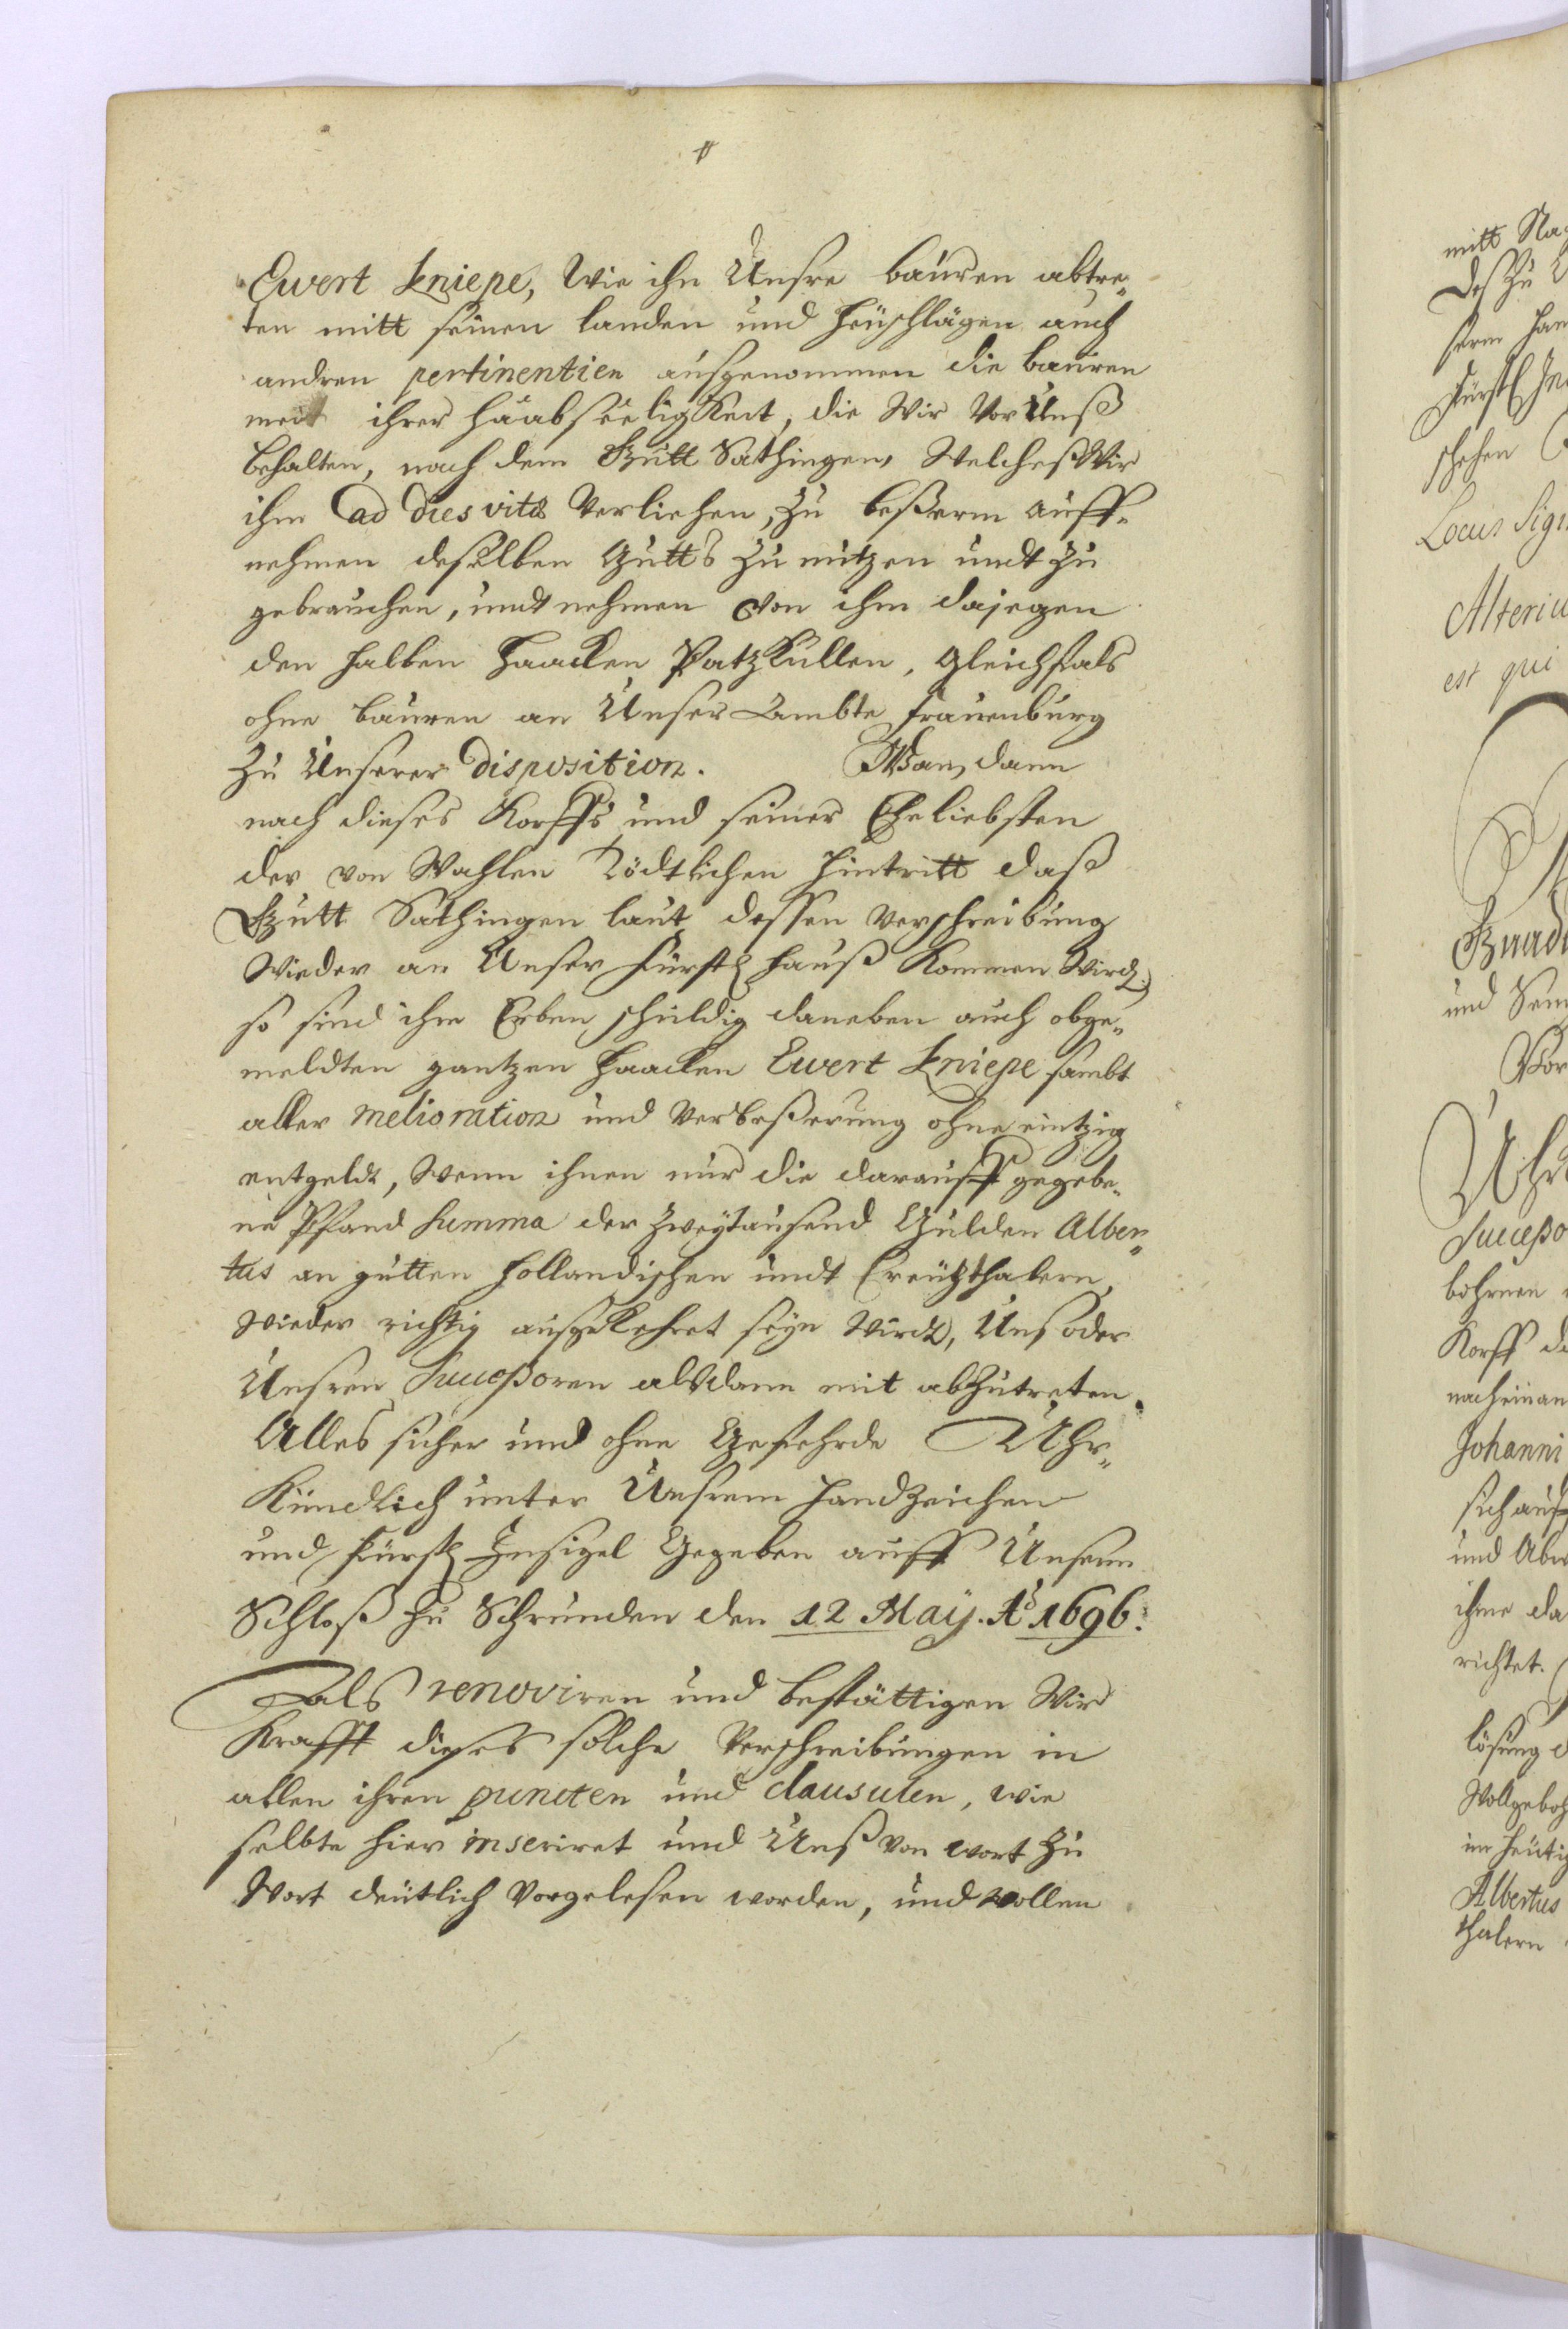 Ewert Kniepe, Wie ihn Unsre bauren abtre„
ten mitt seinen landen und heuschlägen auch
andren pertinentien ausgenommen die bauren
mit ihrer haabseeligkeit, die Wir Vor Unß
behalten, nach dem Gutt Sathingen, Welcheß Wir
ihm ad dies vitæ Verliehen, zu beßerm auff„
nehmen deßelben Gutts zu nutzen undt zu
gebrauchen, undt nehmen von ihm dajegen
den halben haacken Patzkullen, gleichfals
ohne bauren an Unser Ambte frauenburg
zu Unserer Disposition. Wan dann
nach dieses Korffs und seiner Eheliebsten
der von Wahlen Tödtlichen hintritt daß
Gutt Sathingen laut dessen Verschreibung
Wieder an Unser fürstl hauß Kommen Wirdt,
so sind ihre Erben schuldig daneben auch obge„
meldten gantzen haacken Ewert Kniepe sambt
aller melioration und Verbeßerung ohne eintzig
entgeldt, Wenn ihnen nur die darauff gegebe„
ne Pfand Summa der Zweytausend Gulden Alber„
tus an gutten hollandischen undt Creutzthalern
wieder richtig ausgekehret seyn Wirdt, Uns oder
Unsren Succeßoren alsdann mit abzutreten.
Alles sicher und ohne Gefehrde Uhr„
Kundlich unter Unsrem handzeichen
und fürstl Insigel Gegeben auff Unserm
Schloß zu Schrunden den 12 May. Aº 1696.
Als renoviren und bestättigen Wir
Krafft dieses solche Verschreibungen in
allen ihren puncten und clausulen, wie
selbte hier inseriret und Unß von wort zu
Wort deutlich vorgelesen worden, und wollen
mitt
Des zu
serm
fürstl
schehen
Locus Sig
Alteriu
est qui
Gnad
und
Vor
Uhr
Succeßo
bohrnen
Korff
nacheinan
Johanni
sich auf
und
ihme da
richtet.
lösung
Wollgeboh
im heutig
Albertus
thalern